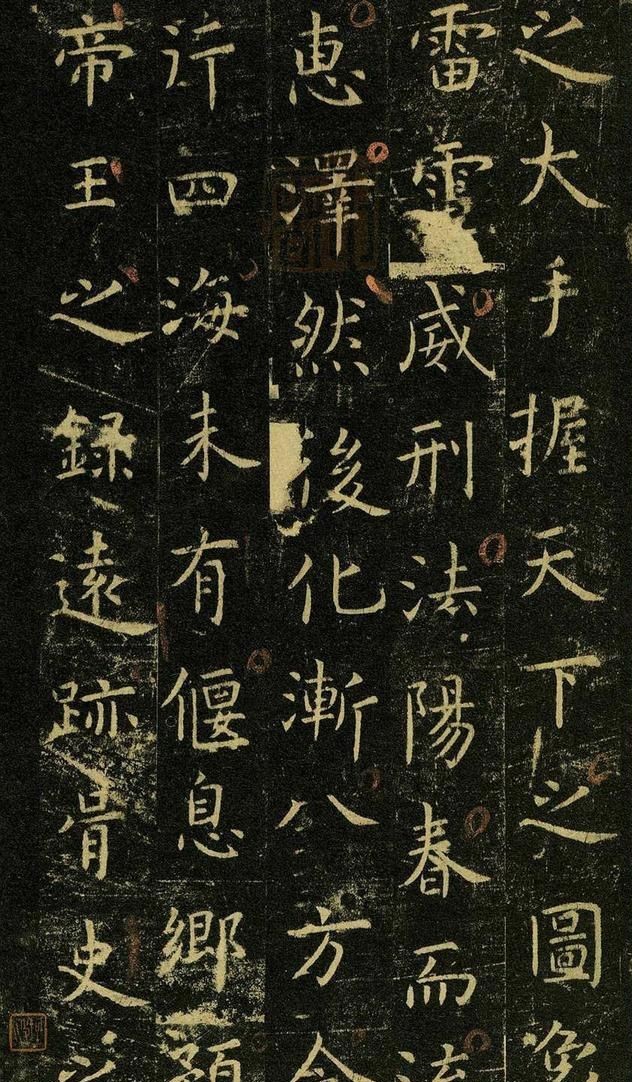 之大手握天下之圖象
雷電威刑法陽春而流
恵澤然後化漸八方令
行四海未有偃息鄉
帝王之錄遠跡胥史之